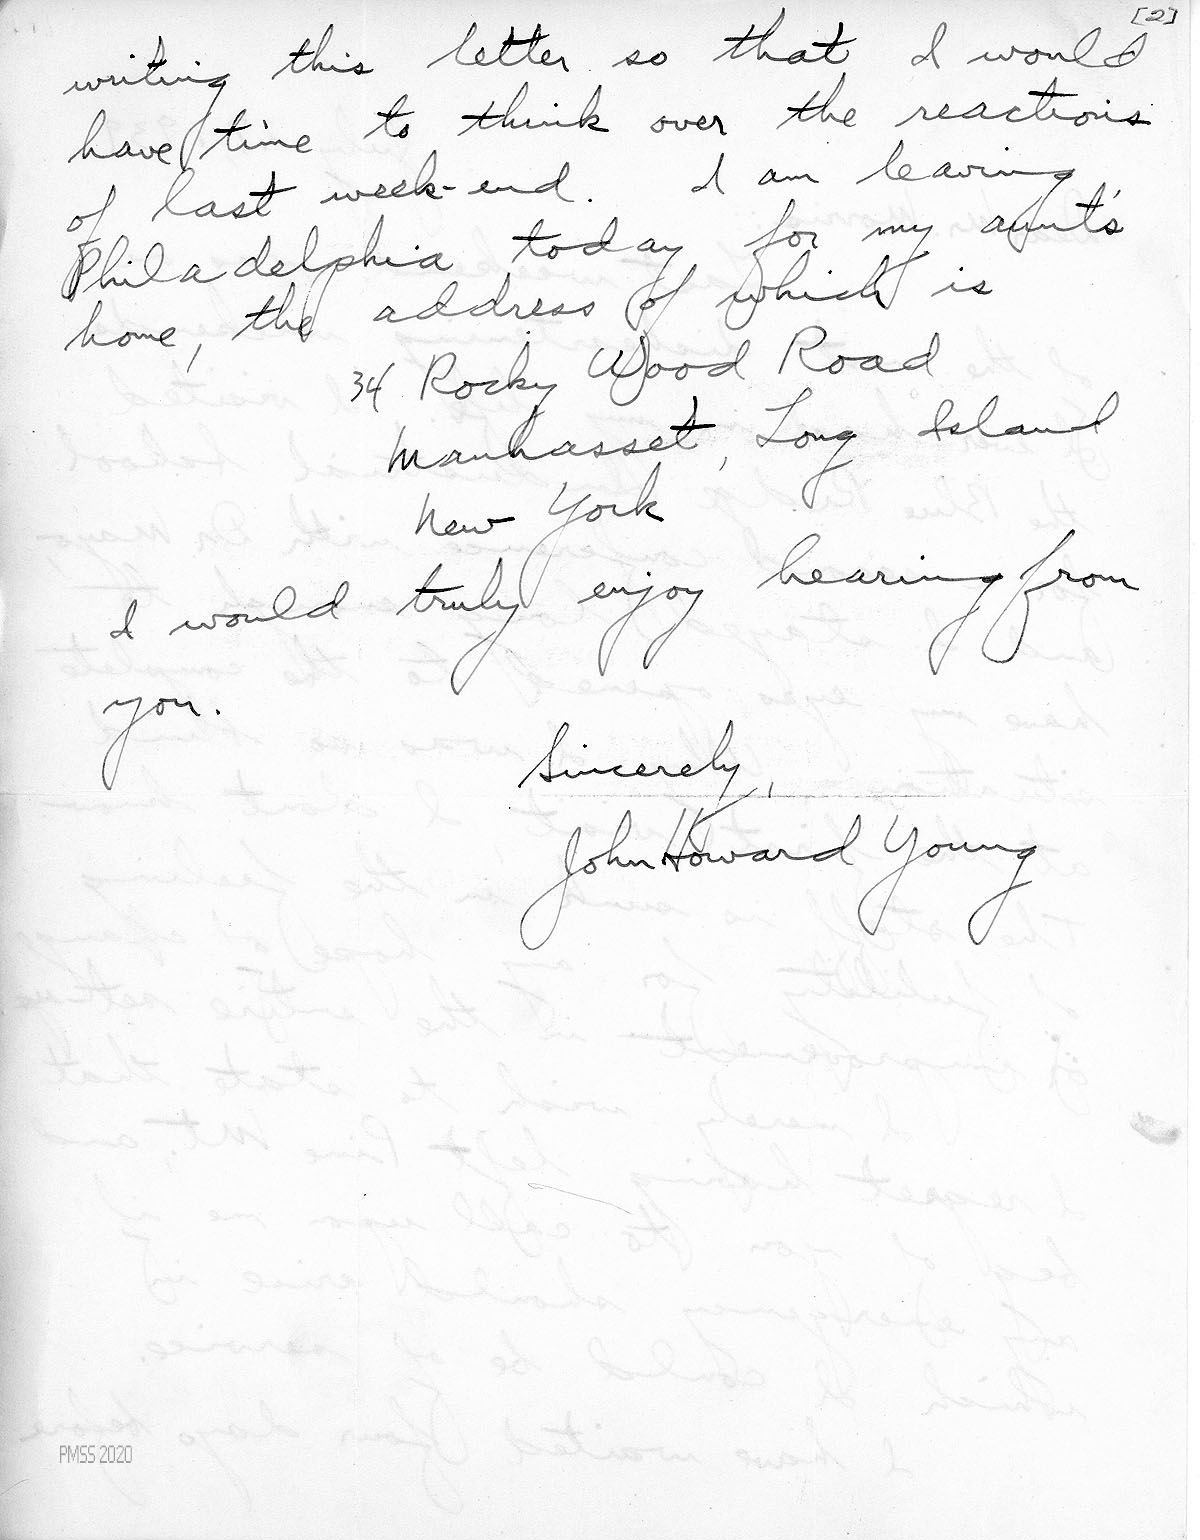 [2]
writing this letter so that I would
have time to think over the reactions
of last week-end. I am leaving
Philadelphia today for my aunt's
home, the address of which is
34 Rocky Wood Road
Manhasset, Long Island
New York
I would truly enjoy hearing from
you.
Sincerely,
John Howard Young
PMSS 2020